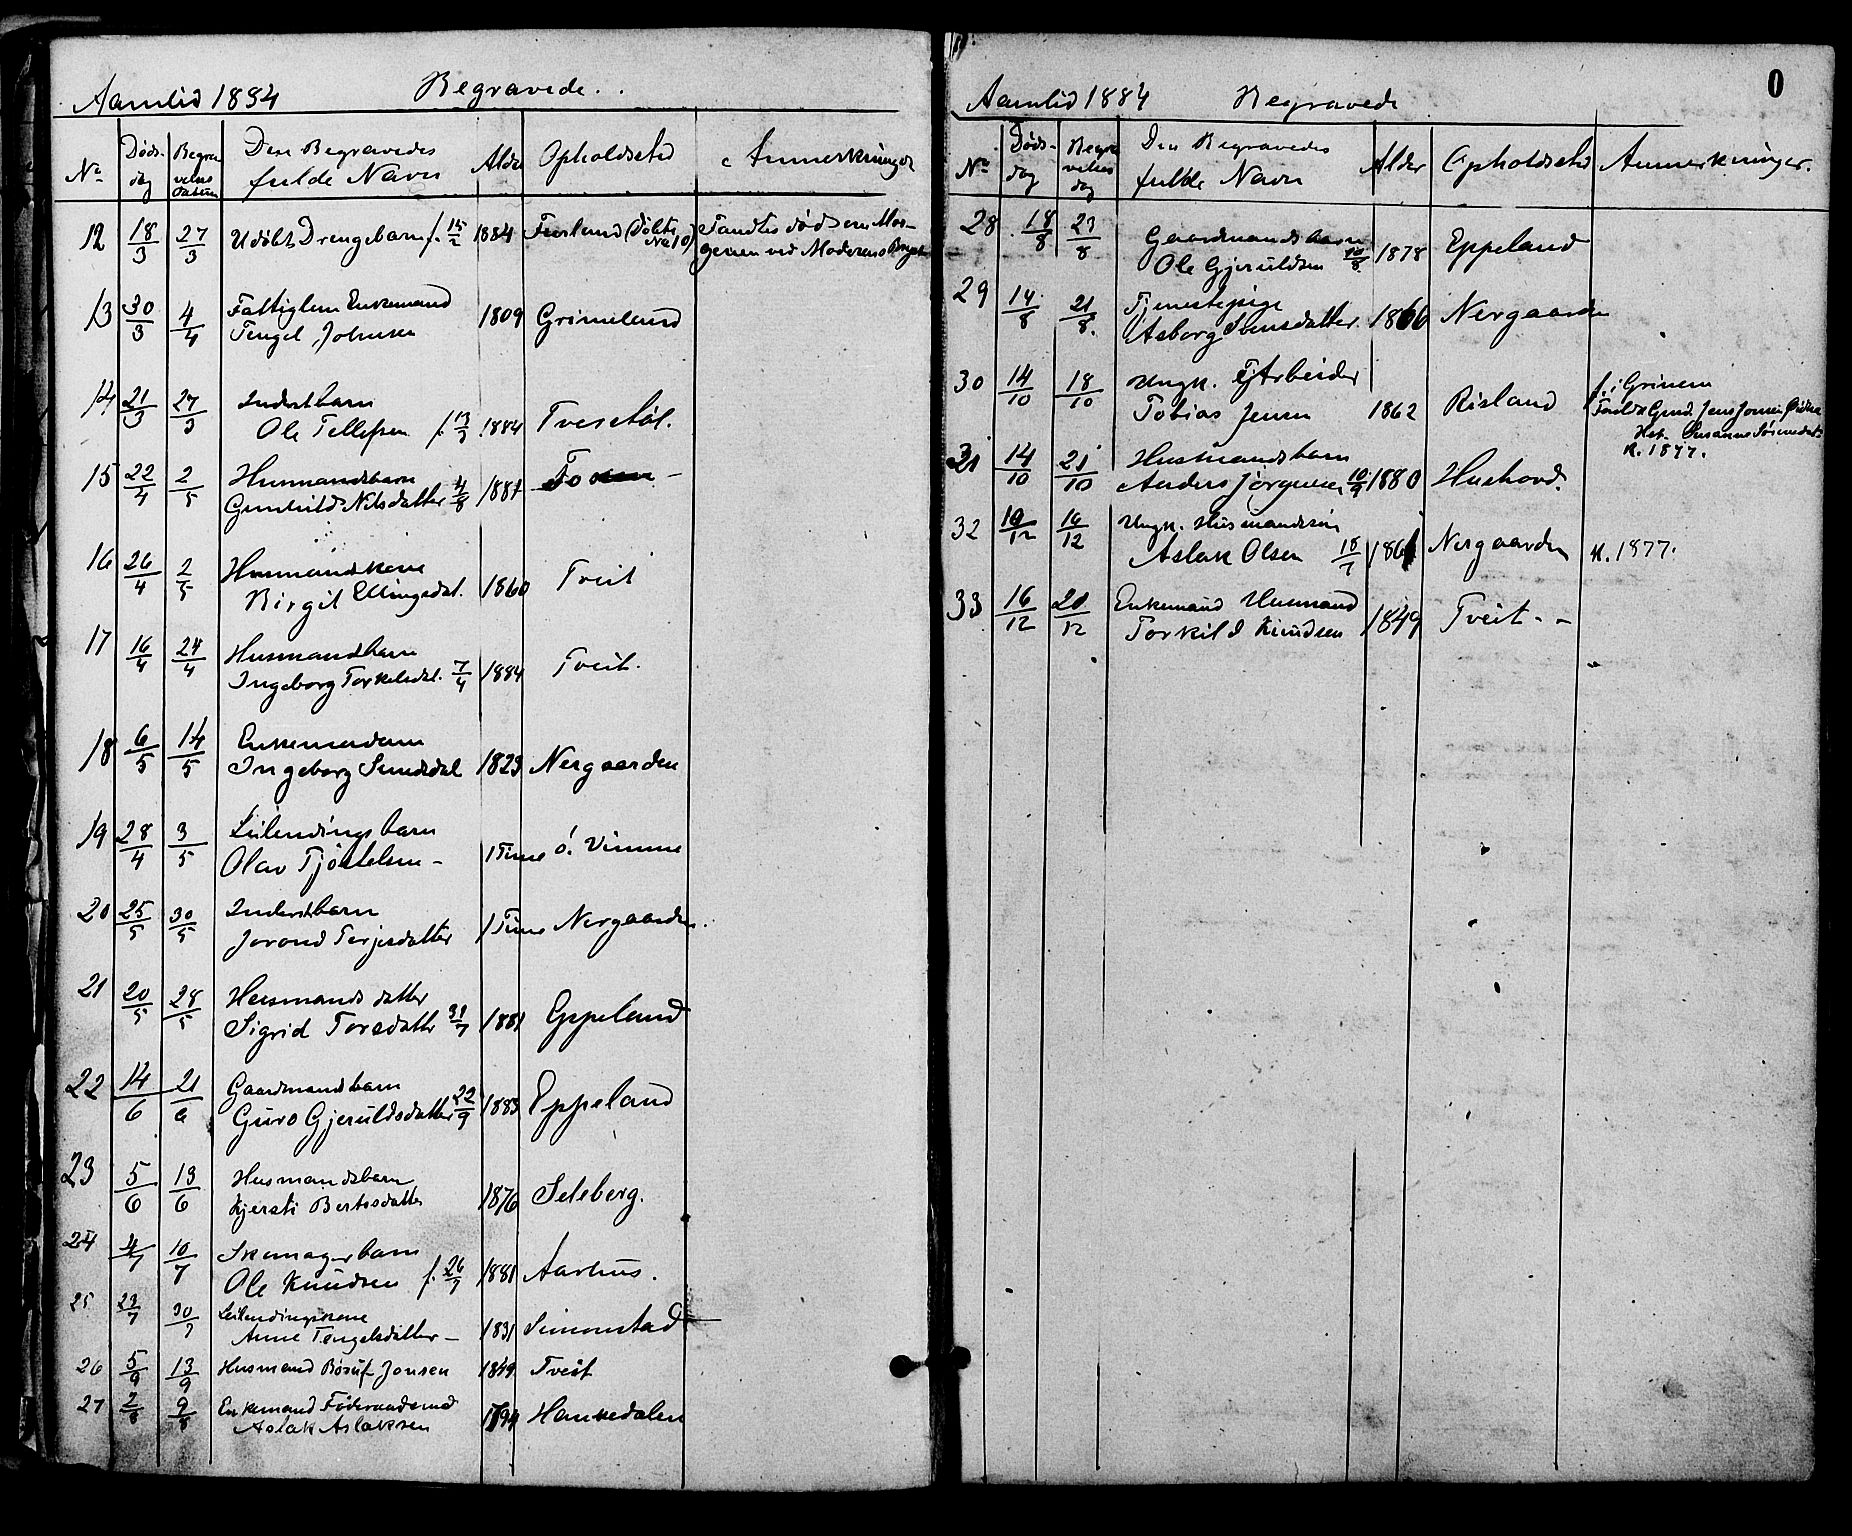 Aamlid 1884 Begravede.
No Døds-dag Begravelses datum Den Begravedes fulde Navn Alder Opholdssted Anmerkninger
12 18/3 27/3 Udøbt Drengebarn f. 15/2 1884 (Døbte No 10) Fandtes død om Mor-
genen ved Moderens Bryst
13 30/3 4/4 Fattiglem Enkemand
Tengel Johnsen 1809 Grimelund
14 21/3 27/3 Inderstbarn
Ole Tellefsen f. 13/3 1884 Tvesetøl.
15 22/4 2/5 Husmandsbarn
Gunhild Nilsdatter 4/8 1881
16 26/4 2/5 Husmandskone
Birgit Ellingsdat. 1860 Tveit
17 16/4 24/4 Husmandbarn
Ingeborg Torkelsdat. 7/4 1884 Tveit.
18 6/5 14/5 Enkemadam
Ingeborg 1823 Nergaarden
19 28/4 3/5 Leilendingsbarn
Olav 1 Time Ö. Vimme
20 25/5 30/5 Inderstbarn
Jorond Terjesdatter 1 Time Nergaarden.
21 20/5 28/5 Husmands datter
Sigrid Torsdatter 31/7 1881 Eppeland
22 14/6 21/6 Gaardmandsbarn
Guro Gjeruldsdatter 22/9 1883 Eppeland
23 5/6 13/6 Husmandsbarn
Kjersti Bertesdatter 1876 Seleberg.
24 4/7 10/7 Skomagerbarn
Ole Knudsen f. 26/7 1881 Aarhus.
25 23/7 30/7 Leilendingskone
Anne Tengelsdatter - 1831 Simonstad
26 5/9 13/9 Husmand Jonsen 1849 Tveit
27 2/8 9/8 Enkemand Føderaadsmand
Aslak Aslaksen 1794 Hankedalen
0
Aamlid 1884 Begravede
No Døds-dag Begravelses dag Den Begravedes fulde Navn Alder Opholdssted Anmerkninger.
28 18/8 23/8 Gaardmandsbarn
Ole Gjeruldsen 10/8 1878 Eppeland
29 14/8 21/8. Tjenestepige
Asborg 1866 Nergaarden
30 14/10 18/10 Ungk. Arbeider
Tobias Jensen 1862 Risland f. i Grinem
Susanne
K. 1877.
31 14/10 21/10 Husmandsbarn
Anders Jörgensen 10/9 1880 Hushovd.
32 10/12 16/12 Ungk. Husmandssøn
Aslak Olsen 18/7 1861 Nergaarden K. 1877.
33 16/12 20/12 Enkemand Husmand
Torkild Knudsen 1849 Tveit - -